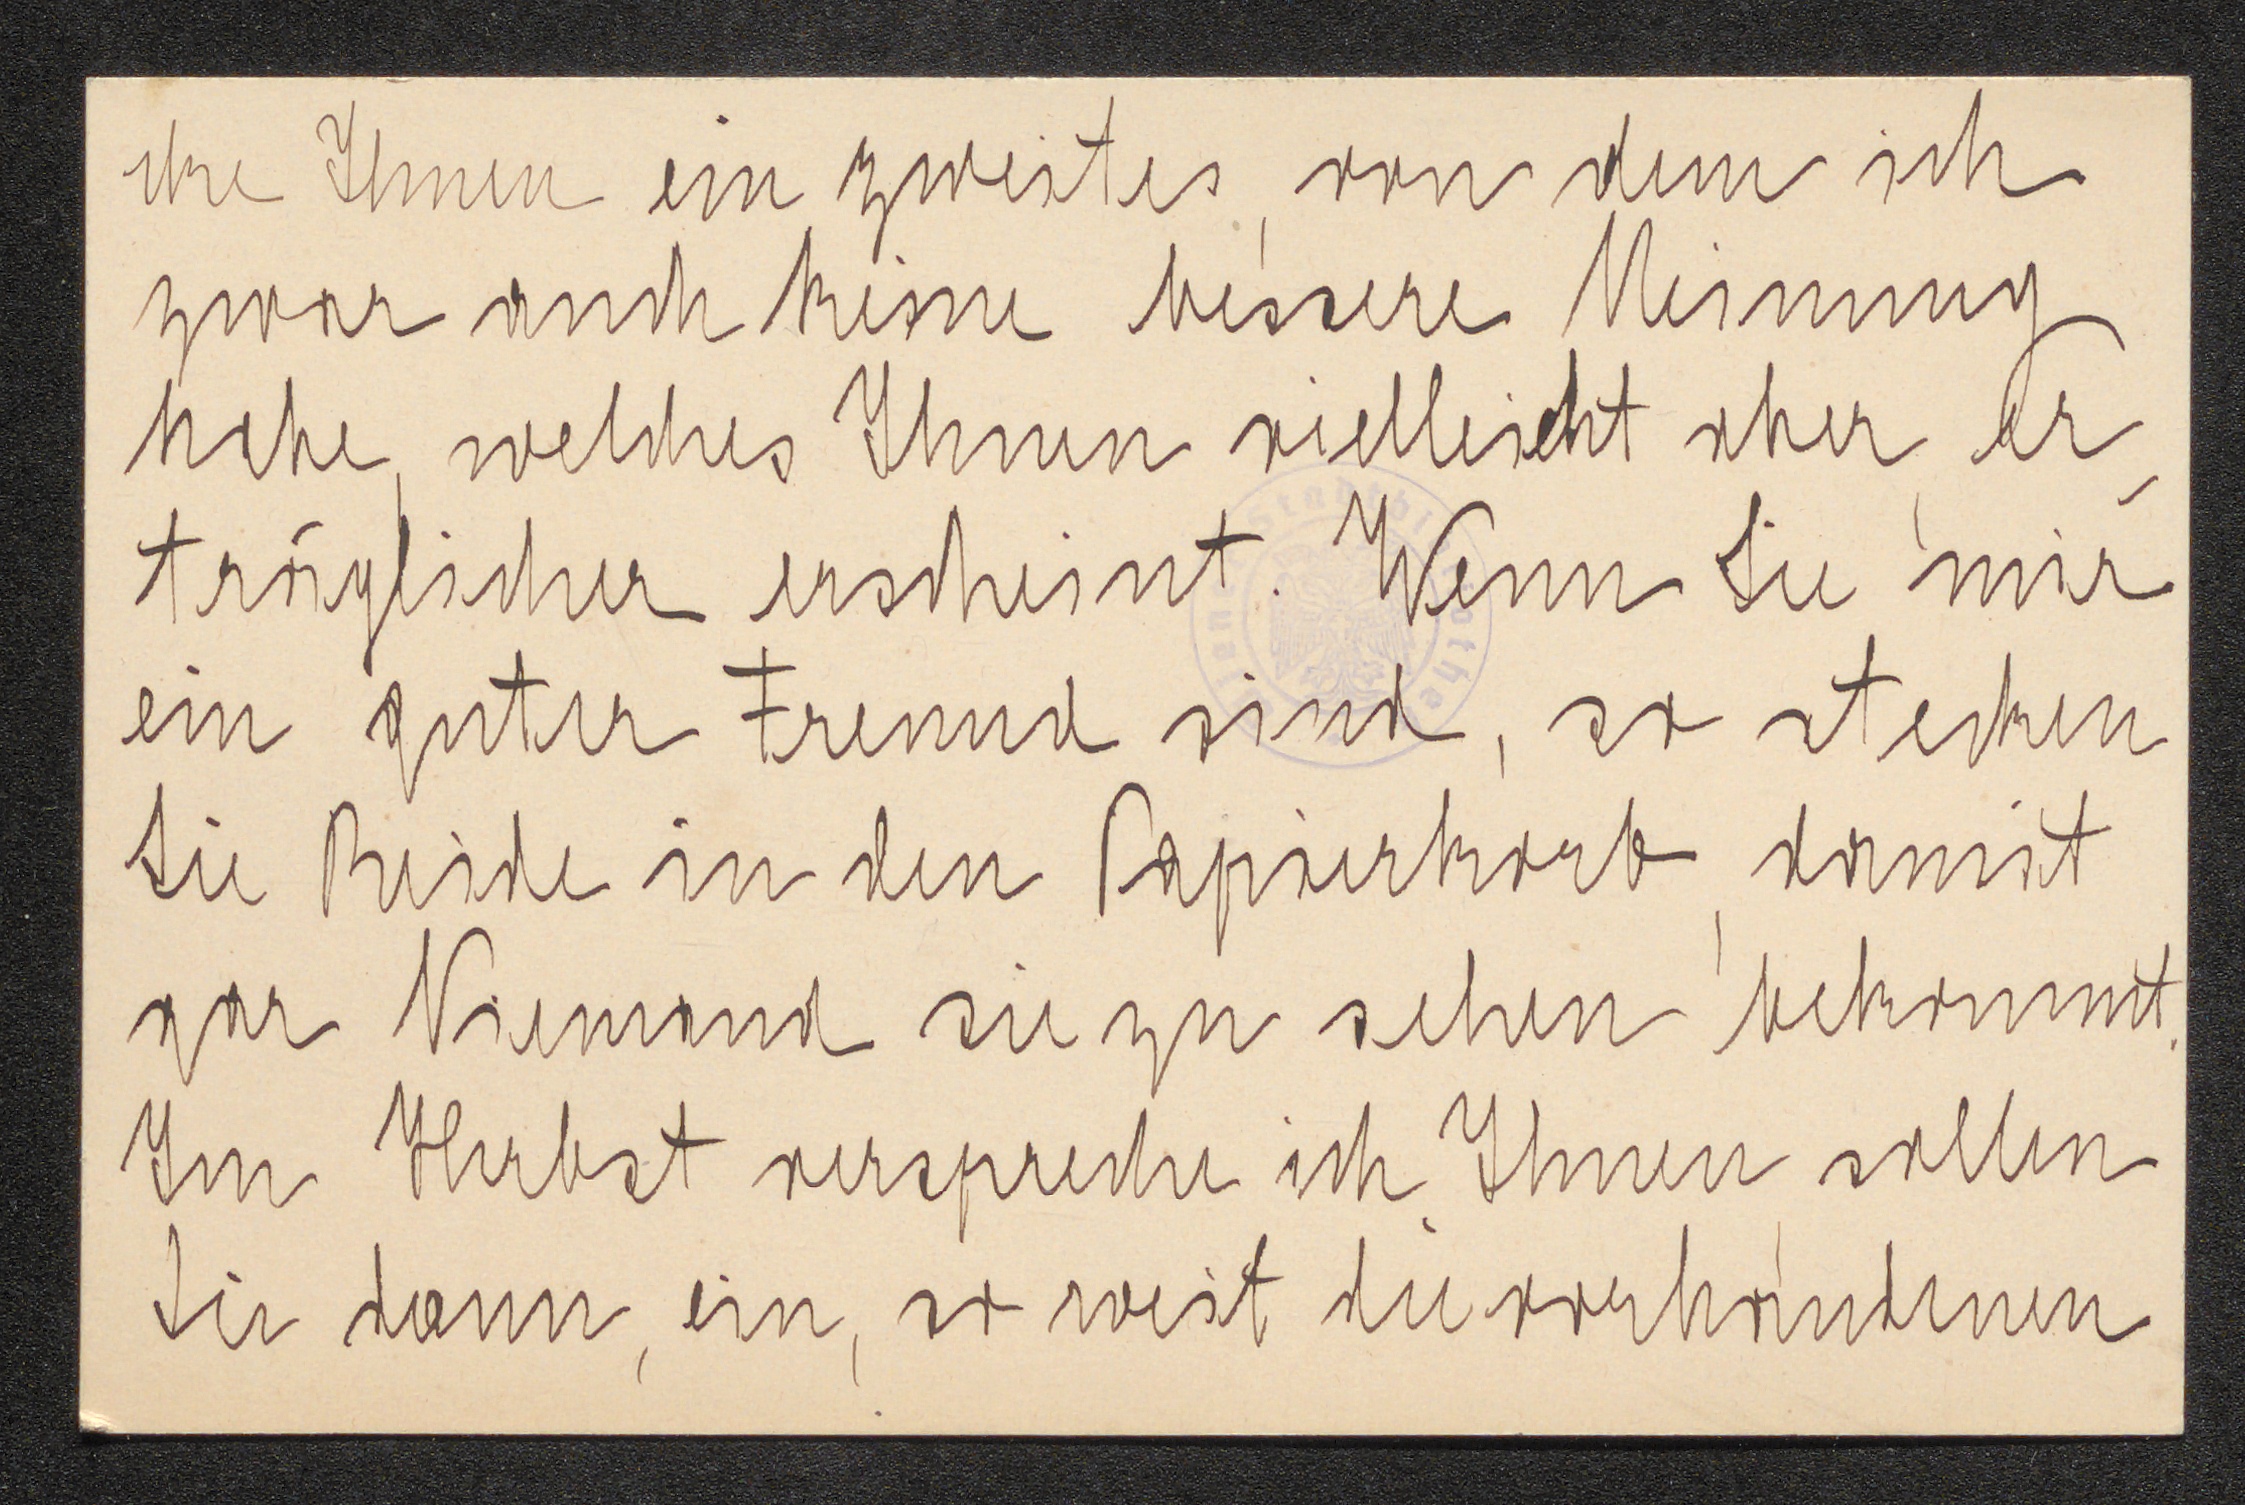 cke Ihnen ein zweites, von dem ich
zwar auch keine bessere Meinung
habe, welches Ihnen vielleicht aber er-
träglicher erscheint. Wenn Sie mir
ein guter Freund sind, so stecken
Sie Beide in den Papierkorb, damit
gar Niemand sie zu sehen bekommt.
Im Herbst verspreche ich Ihnen sollen
Sie dann, ein, so weit die vorhandenen
Wiener Stadtbibliothek